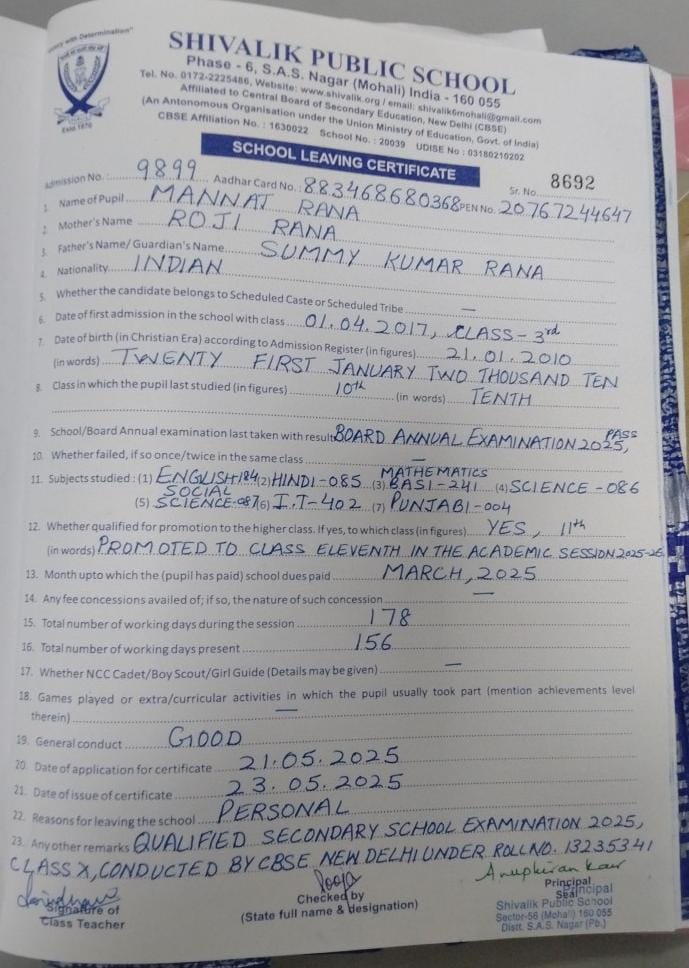 SHIVALIK PUBLIC SCHOOL
Phase - 6, S.A.S. Nagar (Mohali) India - 160 055
Tel. No. 0172-2225486, Website: www.shivalik.org / email: shivalik6mohali@gmail.com
Affiliated to Central Board of Secondary Education, New Delhi (CBSE)
(An Antonomous Organisation under the Union Ministry of Education, Govt. of India)
CBSE Affiliation No. : 1630022 School No. : 20039 UDISE No : 03180210202
Estd. 1970
SCHOOL LEAVING CERTIFICATE
Admission No. : 9899 Aadhar Card No. : 883468680368 PEN No. 20767244647 Sr. No. 8692
1. Name of Pupil MANNAT RANA
2. Mother's Name ROJI RANA
3. Father's Name/ Guardian's Name SUMMY KUMAR RANA
4. Nationality INDIAN
5. Whether the candidate belongs to Scheduled Caste or Scheduled Tribe —
6. Date of first admission in the school with class 01.04.2017, CLASS-3rd
7. Date of birth (in Christian Era) according to Admission Register (in figures) 21.01.2010
(in words) TWENTY FIRST JANUARY TWO THOUSAND TEN
8. Class in which the pupil last studied (in figures) 10th (in words) TENTH
9. School/Board Annual examination last taken with result BOARD ANNUAL EXAMINATION 2025, PASS
10. Whether failed, if so once/twice in the same class —
11. Subjects studied : (1) ENGLISH-184 (2) HINDI-085 (3) MATHEMATICS BASI-241 (4) SCIENCE-086
(5) SOCIAL SCIENCE-087 (6) I.T-402 (7) PUNJABI-004
12. Whether qualified for promotion to the higher class. If yes, to which class (in figures) YES, 11th
(in words) PROMOTED TO CLASS ELEVENTH IN THE ACADEMIC SESSION 2025-26
13. Month upto which the (pupil has paid) school dues paid MARCH, 2025
14. Any fee concessions availed of; if so, the nature of such concession —
15. Total number of working days during the session 178
16. Total number of working days present 156
17. Whether NCC Cadet/Boy Scout/Girl Guide (Details may be given) —
18. Games played or extra/curricular activities in which the pupil usually took part (mention achievements level
therein) —
19. General conduct GOOD
20. Date of application for certificate 21.05.2025
21. Date of issue of certificate 23.05.2025
22. Reasons for leaving the school PERSONAL
23. Any other remarks QUALIFIED SECONDARY SCHOOL EXAMINATION 2025,
CLASS X, CONDUCTED BY CBSE NEW DELHI UNDER ROLL NO. 13235341
Pooja
Anupkiran Kaur
Signature of
Class Teacher
Checked by
(State full name & designation)
Principal
Seal
Principal
Shivalik Public School
Sector-56 (Mohali) 160 055
Distt. S.A.S. Nagar (Pb.)